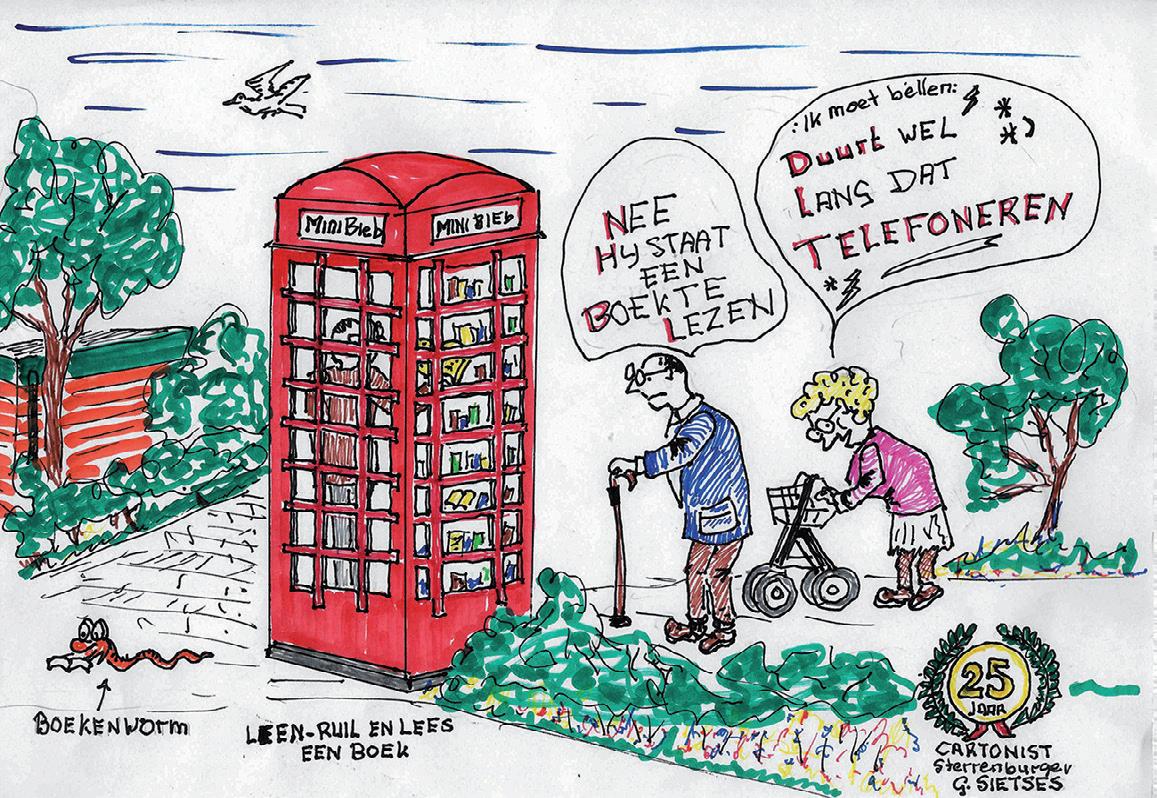 MiniBieb
MINIBIEB
NEE
Hy STAAT
EEN
BOEK TE
LEZEN
: Ik moet bellen:
Duurt WEL
LANG DAT
TELEFONEREN
BOEKENWORM
LEEN-RUIL EN LEES
EEN BOEK
25
JAAR
CARTONIST
Sterrenburger
G. SIETSES